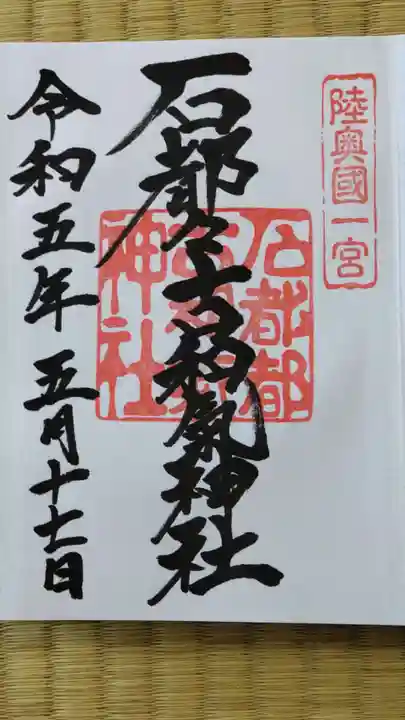 陸奥國一宮
石都々古和氣神社
石都都
古和氣
神社
令和五年五月十七日